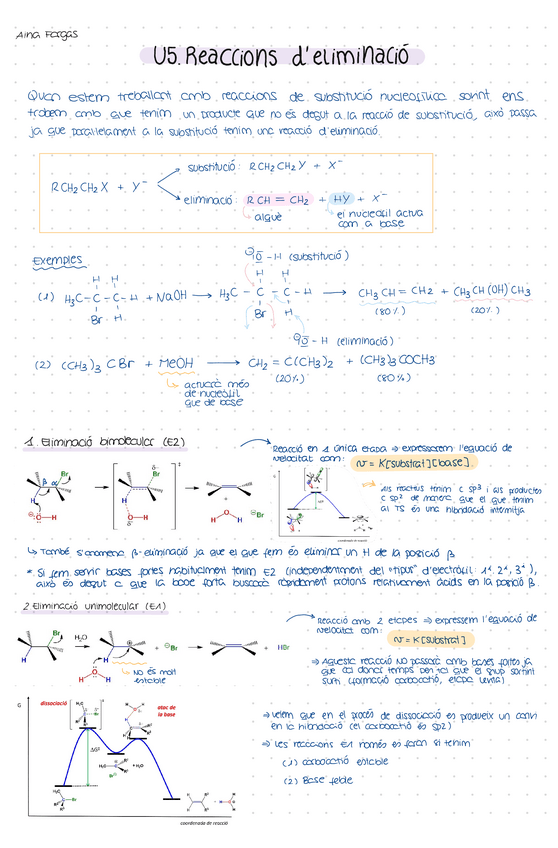 Aina Fargas
U5. Reaccions d'eliminació
Quan estem treballant amb reaccions de substitució nucleofílica sovint ens
trobem amb que tenim un producte que no és degut a la reacció de substitució, això passa
ja que paral·lelament a la substitució tenim una reacció d'eliminació.
substitució: RCH2CH2Y + X⁻
RCH2CH2X + Y⁻
eliminació: RCH = CH2 + HY + X⁻
alquè
el nucleòfil actua
com a base
Exemples
⊖O - H (substitució)
H H
H H
(1) H3C - C - C - H + NaOH → H3C - C - C - H → CH3CH = CH2 + CH3CH(OH)CH3
Br H
Br H
(80%) (20%)
⊖O - H (eliminació)
(2) (CH3)3CBr + MeOH → CH2 = C(CH3)2 + (CH3)3COCH3
(20%) (80%)
actuarà més
de nucleòfil
que de base
1. Eliminació bimolecular (E2)
Reacció en 1 única etapa ⇒ expressarem l'equació de
velocitat com: v = K[substrat][base]
β α Br
H
H O
δ⁻ Br
H
H O H
δ⁻
‡
+
H O H
⊖Br
coordenada de reacció
Als reactius tenim C sp3 i als productes
C sp2 de manera que el que tenim
al TS és una hibridació intermitja
↳ També s'anomena β-eliminació ja que el que fem és eliminar un H de la posició β
* Si fem servir bases fortes habitualment tenim E2 (independentment del "tipus" d'electròfil: 1ª, 2ª, 3ª),
això és degut a que la base forta buscarà ràpidament protons relativament àcids en la posició β.
2. Eliminació unimolecular (E1)
Reacció amb 2 etapes ⇒ expressem l'equació de
velocitat com:
v = K[substrat]
Br
H
H2O
⊕
H
+ ⊖Br
+ HBr
H O H
No és molt
estable
⇒ Aquesta reacció NO passarà amb bases fortes ja
que cal donar temps per tal que el grup sortint
surti (formació carbocatió, etapa lenta)
G
dissociació
atac de
la base
ΔG‡
+ H2O
coordenada de reacció
⇒ veiem que en el procés de dissociació es produeix un canvi
en la hibridació (el carbocatió és sp2)
⇒ Les reaccions E1 només es faran si tenim
(1) carbocatió estable
(2) Base feble